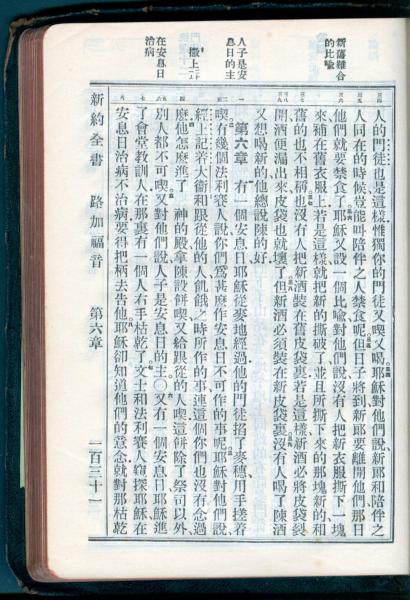 新舊難合
的比喻
人子是安
息日的主
撒上
在安息日
治病
人的門徒也是這樣惟獨你的門徒又喫又喝耶穌對他們說新郎和陪伴之
人同在的時候豈能叫陪伴之人禁食呢但日子將到新郎要離開他們那日
他們就要禁食了耶穌又設一個比喻對他們說沒有人把新衣服撕下一塊
來補在舊衣服上若是這樣就把新的撕破了並且所撕下來的那塊新的和
舊的也不相稱也沒有人把新酒裝在舊皮袋裏若是這樣新酒必將皮袋裂
開酒便漏出來皮袋也就壞了但新酒必須裝在新皮袋裏沒有人喝了陳酒
又想喝新的他總說陳的好
第六章 有一個安息日耶穌從麥地經過他的門徒掐了麥穗用手搓着
喫有幾個法利賽人說你們爲甚麽作安息日不可作的事呢耶穌對他們說
經上記着大衞和跟從他的人飢餓之時所作的事連這個你們也沒有念過
麽他怎麽進了 神的殿拿陳設餅喫又給跟從的人喫這餅除了祭司以外
別人都不可喫又對他們說人子是安息日的主〇又有一個安息日耶穌進
了會堂教訓人在那裏有一個人右手枯乾了文士和法利賽人窺探耶穌在
安息日治病不治病要得把柄去告他耶穌卻知道他們的意念就對那枯乾
新約全書 路加福音 第六章 二百三十一